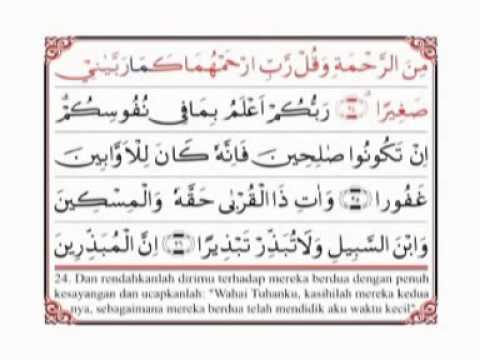 مِنَ الرَّحْمَةِ وَقُلْ رَّبِّ ارْحَمْهُمَا كَمَا رَبَّيٰنِيْ
صَغِيْرًا ۗ ﴿٢٤﴾ رَبُّكُمْ اَعْلَمُ بِمَا فِيْ نُفُوْسِكُمْ ۗ
اِنْ تَكُوْنُوْا صٰلِحِيْنَ فَاِنَّهٗ كَانَ لِلْاَوَّابِيْنَ
غَفُوْرًا ﴿٢٥﴾ وَاٰتِ ذَا الْقُرْبٰى حَقَّهٗ وَالْمِسْكِيْنَ
وَابْنَ السَّبِيْلِ وَلَا تُبَذِّرْ تَبْذِيْرًا ﴿٢٦﴾ اِنَّ الْمُبَذِّرِيْنَ
24. Dan rendahkanlah dirimu terhadap mereka berdua dengan penuh
kesayangan dan ucapkanlah: "Wahai Tuhanku, kasihilah mereka kedua
nya, sebagaimana mereka berdua telah mendidik aku waktu kecil"